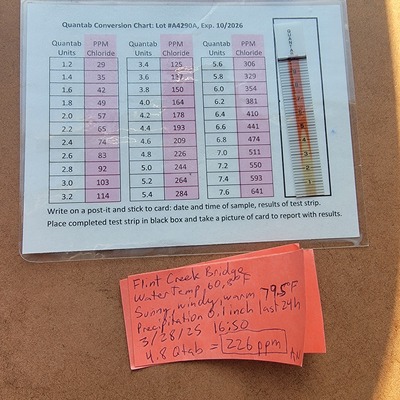 Quantab Conversion Chart: Lot #A4290A, Exp. 10/2026
Quantab Units PPM Chloride Quantab Units PPM Chloride Quantab Units PPM Chloride
1.2 29 3.4 125 5.6 306
1.4 35 3.6 137 5.8 329
1.6 42 3.8 150 6.0 354
1.8 49 4.0 164 6.2 381
2.0 57 4.2 178 6.4 410
2.2 65 4.4 193 6.6 441
2.4 74 4.6 209 6.8 474
2.6 83 4.8 226 7.0 511
2.8 92 5.0 244 7.2 550
3.0 103 5.2 264 7.4 593
3.2 114 5.4 284 7.6 641
QUANTAB
Write on a post-it and stick to card: date and time of sample, results of test strip.
Place completed test strip in black box and take a picture of card to report with results.
Flint Creek Bridge
Water Temp, 60.8°F
Sunny, windy, warm 79.5F
Precipitation 0.1 inch last 24h
3/28/25 16:50
4.8 Qtab = 226 ppm